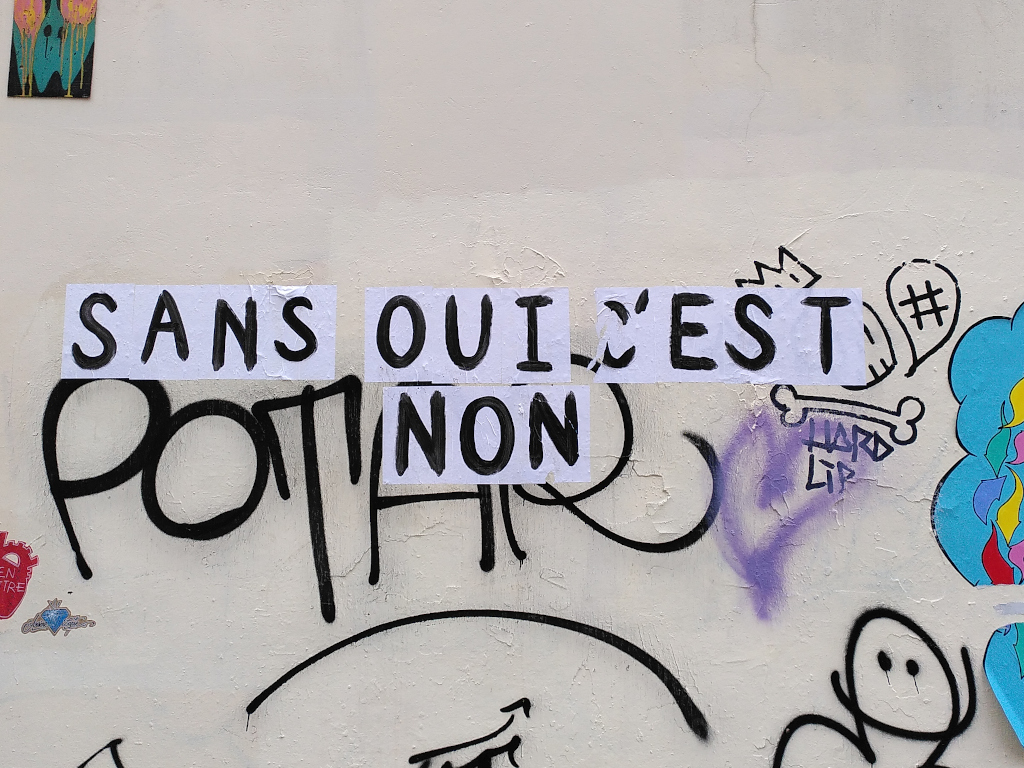 SANS OUI C'EST
NON
POTAR
#
HARD
LIP